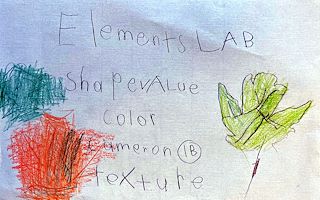 Elements LAB
ShapevALue
Color
Cameron 1B
TeXture